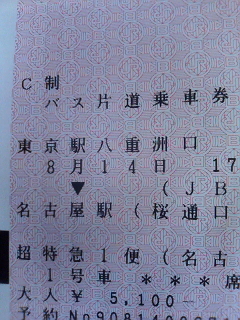 C制
バス片道乗車券
東京駅八重洲口
8月14日 17
▼ (JB
名古屋駅(桜通口
超特急1便(名古
1号車 ***席
大人 ¥ 5,100-
予約No908140